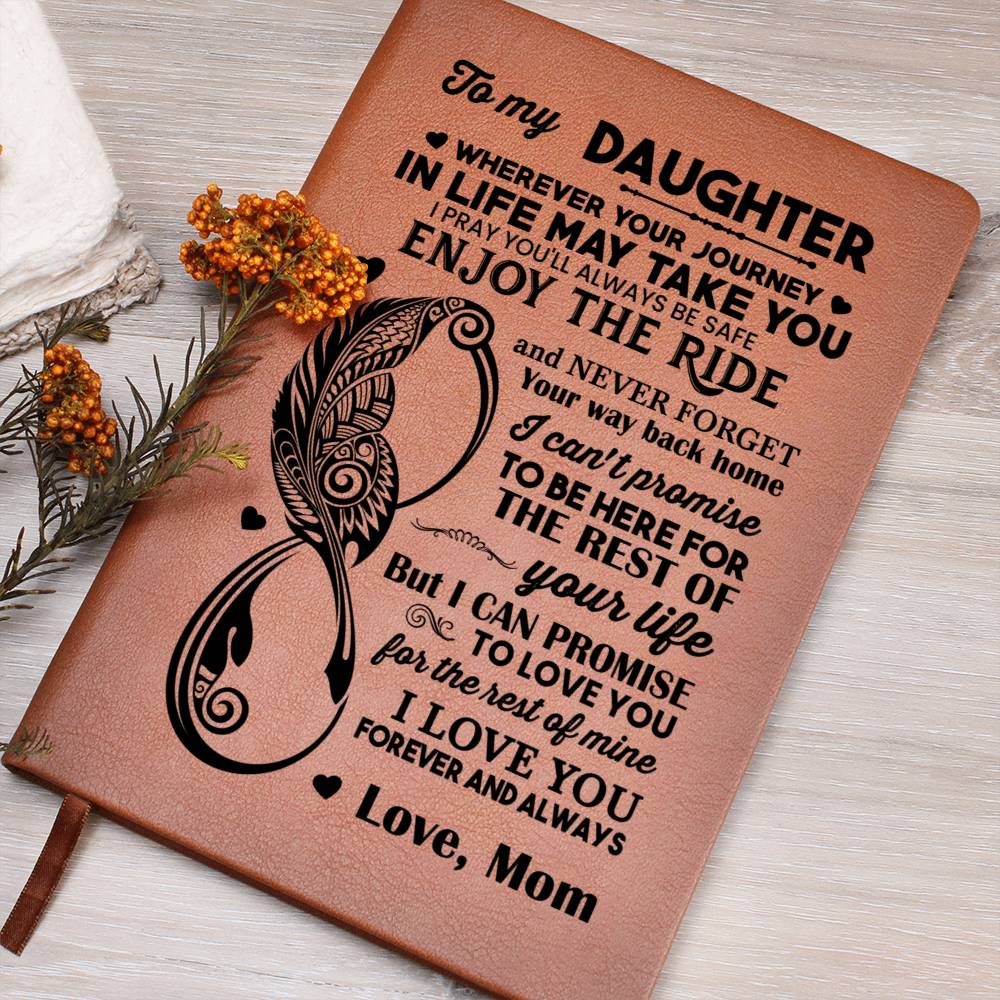 To my DAUGHTER
WHEREVER YOUR JOURNEY
IN LIFE MAY TAKE YOU
I PRAY YOU'LL ALWAYS BE SAFE
ENJOY THE RIDE
and NEVER FORGET
Your way back home
I can't promise
TO BE HERE FOR
THE REST OF
your life
But I CAN PROMISE
TO LOVE YOU
for the rest of mine
I LOVE YOU
FOREVER AND ALWAYS
Love, Mom